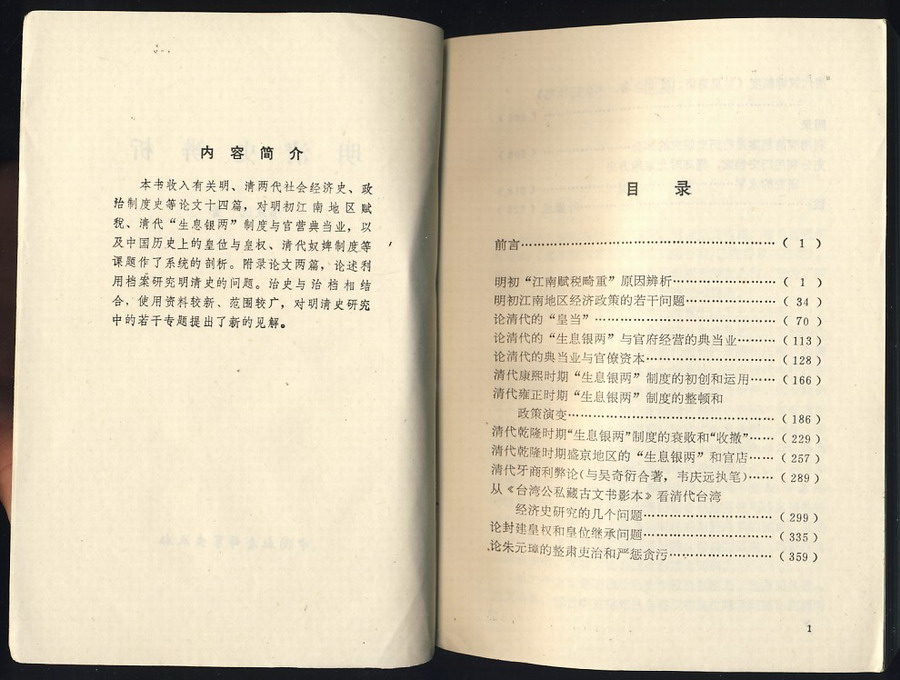 内容简介
本书收入有关明、清两代社会经济史、政
治制度史等论文十四篇，对明初江南地区赋
税、清代“生息银两”制度与官营典当业，以
及中国历史上的皇位与皇权、清代奴婢制度等
课题作了系统的剖析。附录论文两篇，论述利
用档案研究明清史的问题。治史与治档相结
合，使用资料较新、范围较广，对明清史研究
中的若干专题提出了新的见解。
目录
前言……………………………………（1）
明初“江南赋税畸重”原因辨析……………（1）
明初江南地区经济政策的若干问题…………（34）
论清代的“皇当”…………………………（70）
论清代的“生息银两”与官府经营的典当业……（113）
论清代的典当业与官僚资本…………………（128）
清代康熙时期“生息银两”制度的初创和运用……（166）
清代雍正时期“生息银两”制度的整顿和
政策演变……………………………（186）
清代乾隆时期“生息银两”制度的衰败和“收撤”……（229）
清代乾隆时期盛京地区的“生息银两”和官店……（257）
清代牙商利弊论（与吴奇衍合著，韦庆远执笔）……（289）
从《台湾公私藏古文书影本》看清代台湾
经济史研究的几个问题…………………（299）
论封建皇权和皇位继承问题…………………（335）
论朱元璋的整肃吏治和严惩贪污……………（359）
1